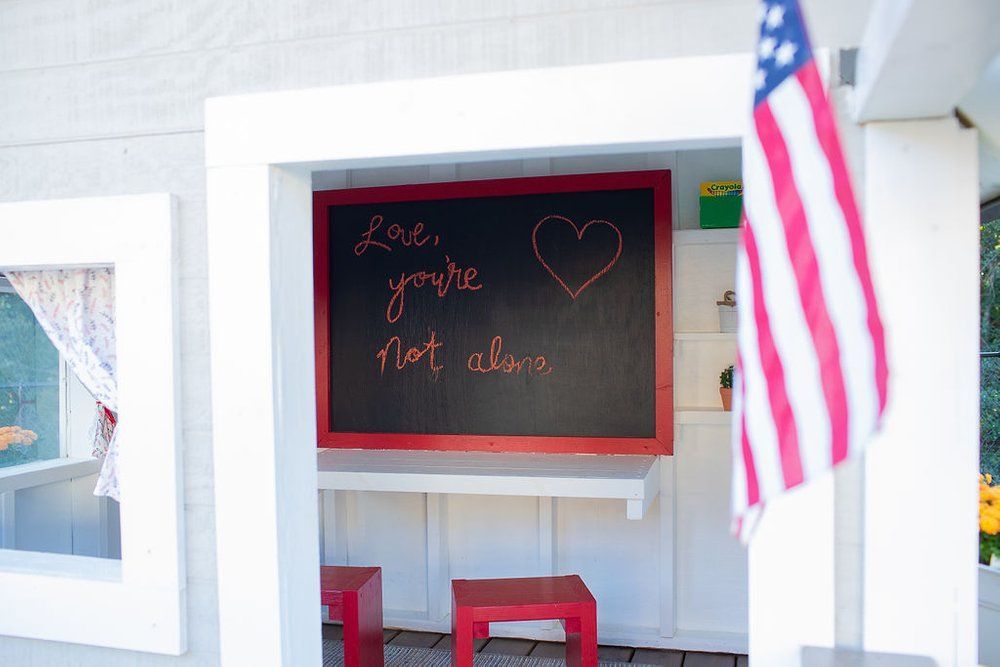 Love,
you're
Not alone
Crayola